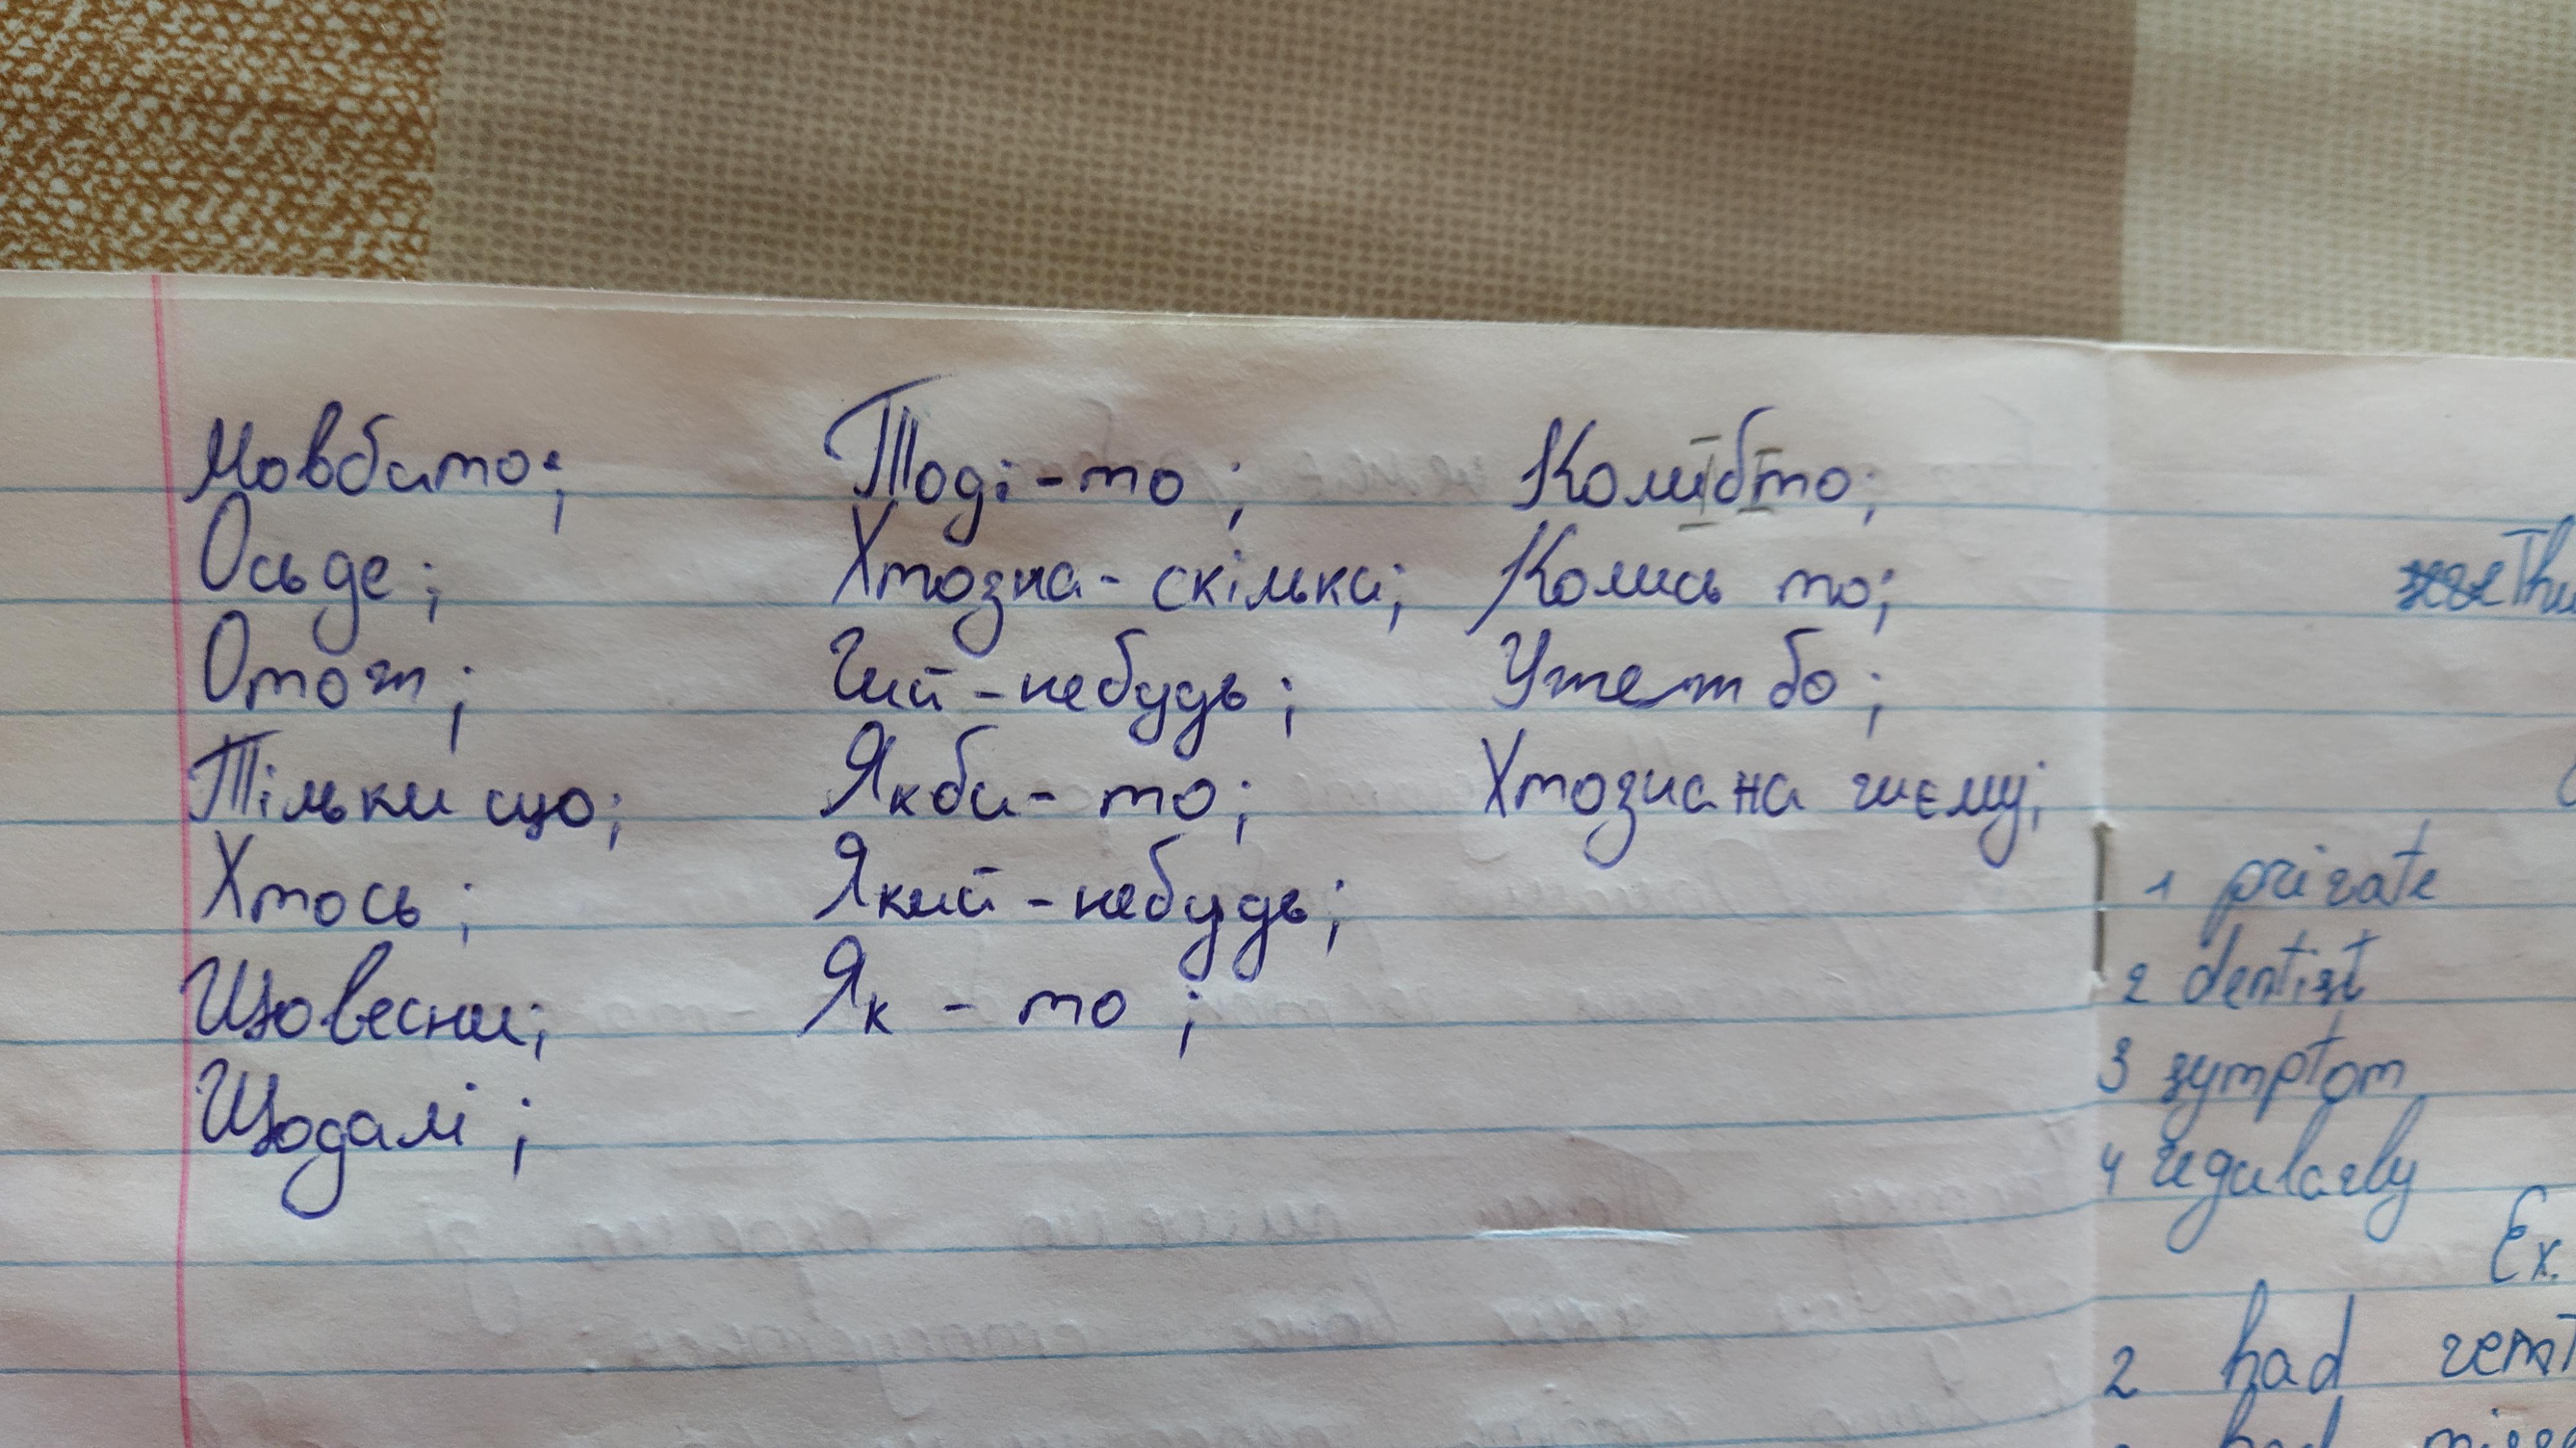 Мовбито;
Осьде;
Отож;
Тільки що;
Хтось;
Щовесни;
Щодалі;
Тоді-то;
Хтозна-скільки;
Чий-небудь;
Якби-то;
Який-небудь;
Як-то;
Колибто;
Колись то;
Уже ж бо;
Хтозна на чиєму;
1 private
2 dentist
3 symptom
4 regularly
Ex.
2 had
had